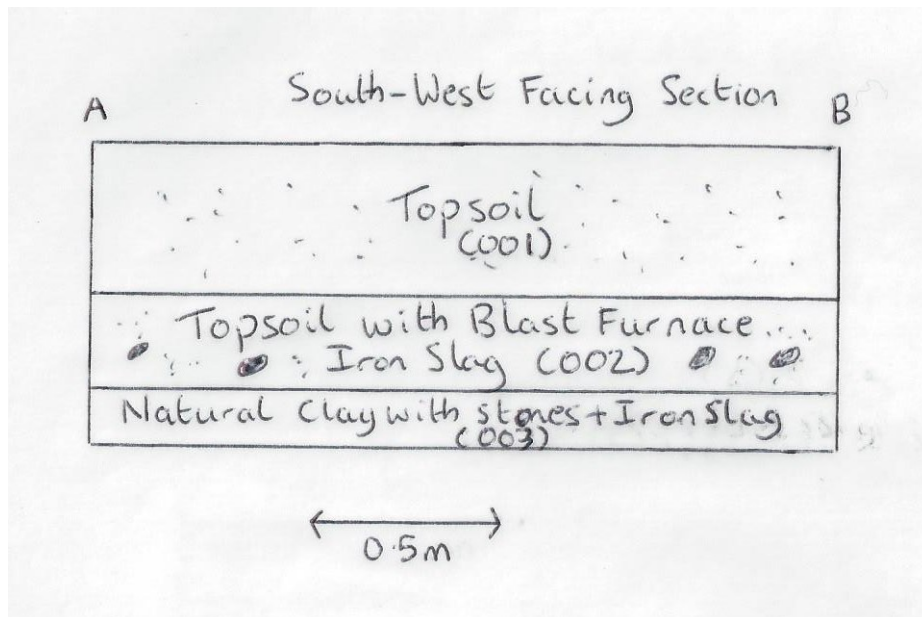 South-West Facing Section
A B
Topsoil
(001)
Topsoil with Blast Furnace
Iron Slag (002)
Natural Clay with stones + Iron Slag
(003)
0.5m